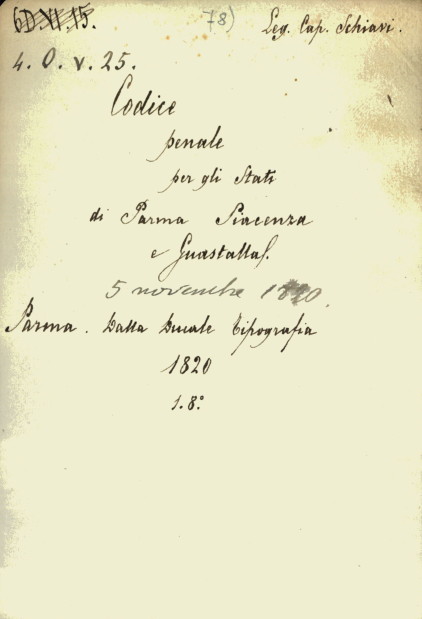 6D.VI.15. 78) Leg. Cap. Schiavi.
4. O. V. 25.
Codice
penale
per gli Stati
di Parma Piacenza
e Guastalla.
5 novembre 1820.
Parma. Dalla Ducale Tipografia
1820
1. 8.°